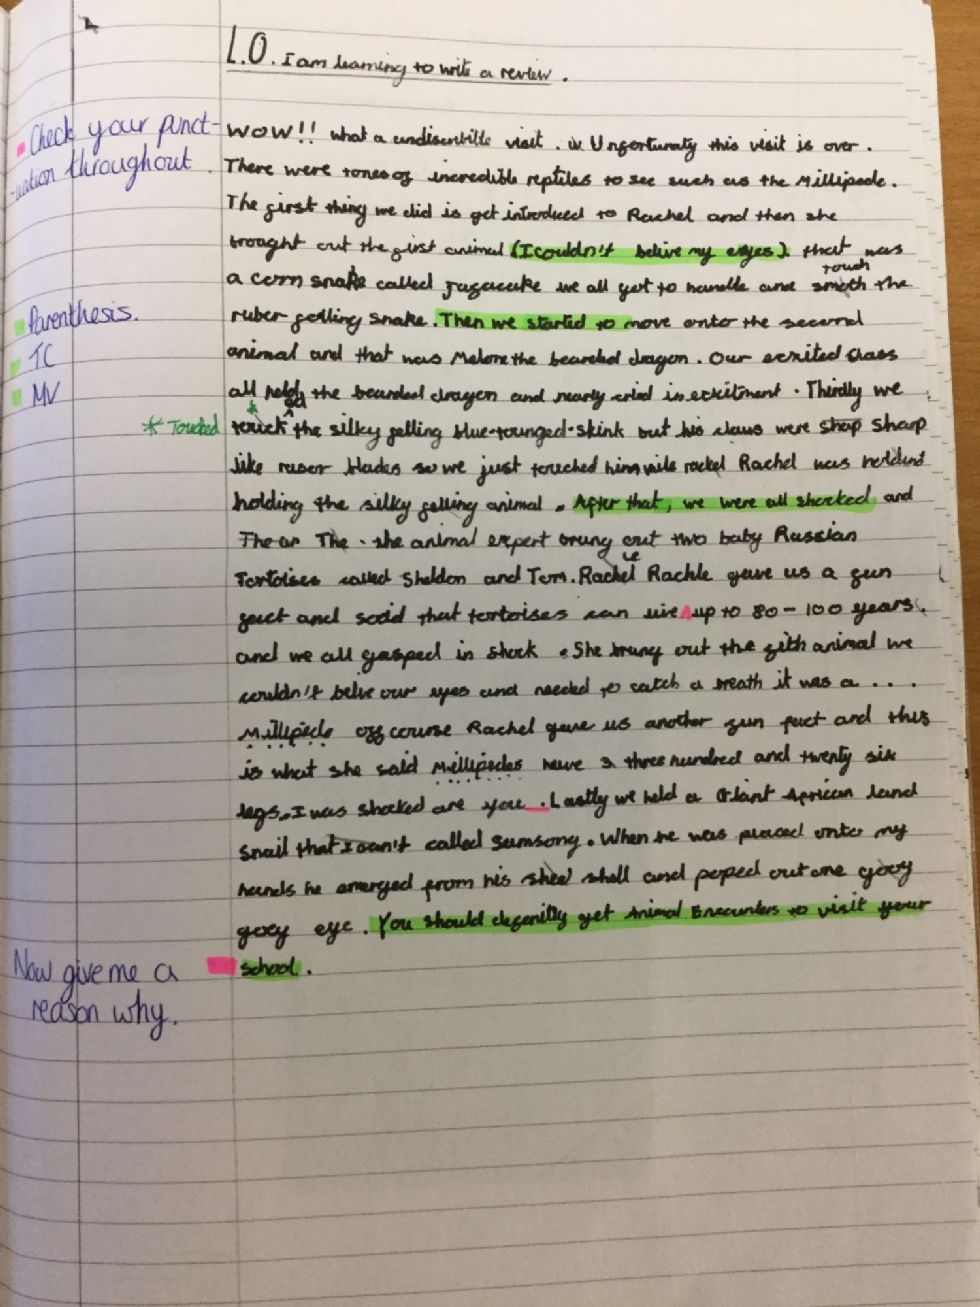 L.O. I am learning to write a review.
• Check your punct-
-uation throughout.
WOW!! what a undiscribille visit. Unfortunaty this visit is over.
There were tones of incredible reptiles to see such as the Millipede.
The first thing we did is get introduced to Rachel and then she
brought out the first animal (I couldn't belive my eyes). that was
touch
a corn snake called we all got to handle and the
Parenthesis.
ruber felling snake. Then we started to move onto the second
TC
animal and that was the bearded dragon. Our exited class
MV
all held the bearded dragon and nearly cried in excitment. Thirdly we
* Touched
touch ed the silky felling blue-tounged-skink but his claws were shap sharp
like rasor blades so we just touched him wile rackel Rachel was
holding the silky felling animal. After that, we were all shocked and
The . the animal expert brung out two baby Russian
Tortoises called Sheldon and Tom. Rachel Rachle gave us a fun
fact and said that tortoises can live up to 80 - 100 years.
and we all gasped in shock. She brung out the fith animal we
couldn't belive our eyes and needed to catch a breath it was a ....
Millipede off course Rachel gave us another fun fact and this
is what she said Millipedes have 3 three hundred and twenty six
legs. I was shocked are you . Lastly we held a Giant African land
snail that I can't called Samsong. When he was placed onto my
hands he emerged from his shell and poped out one gooy
gooy eye. You should defenitly get Animal Encounters to visit your
school.
Now give me a
reason why.